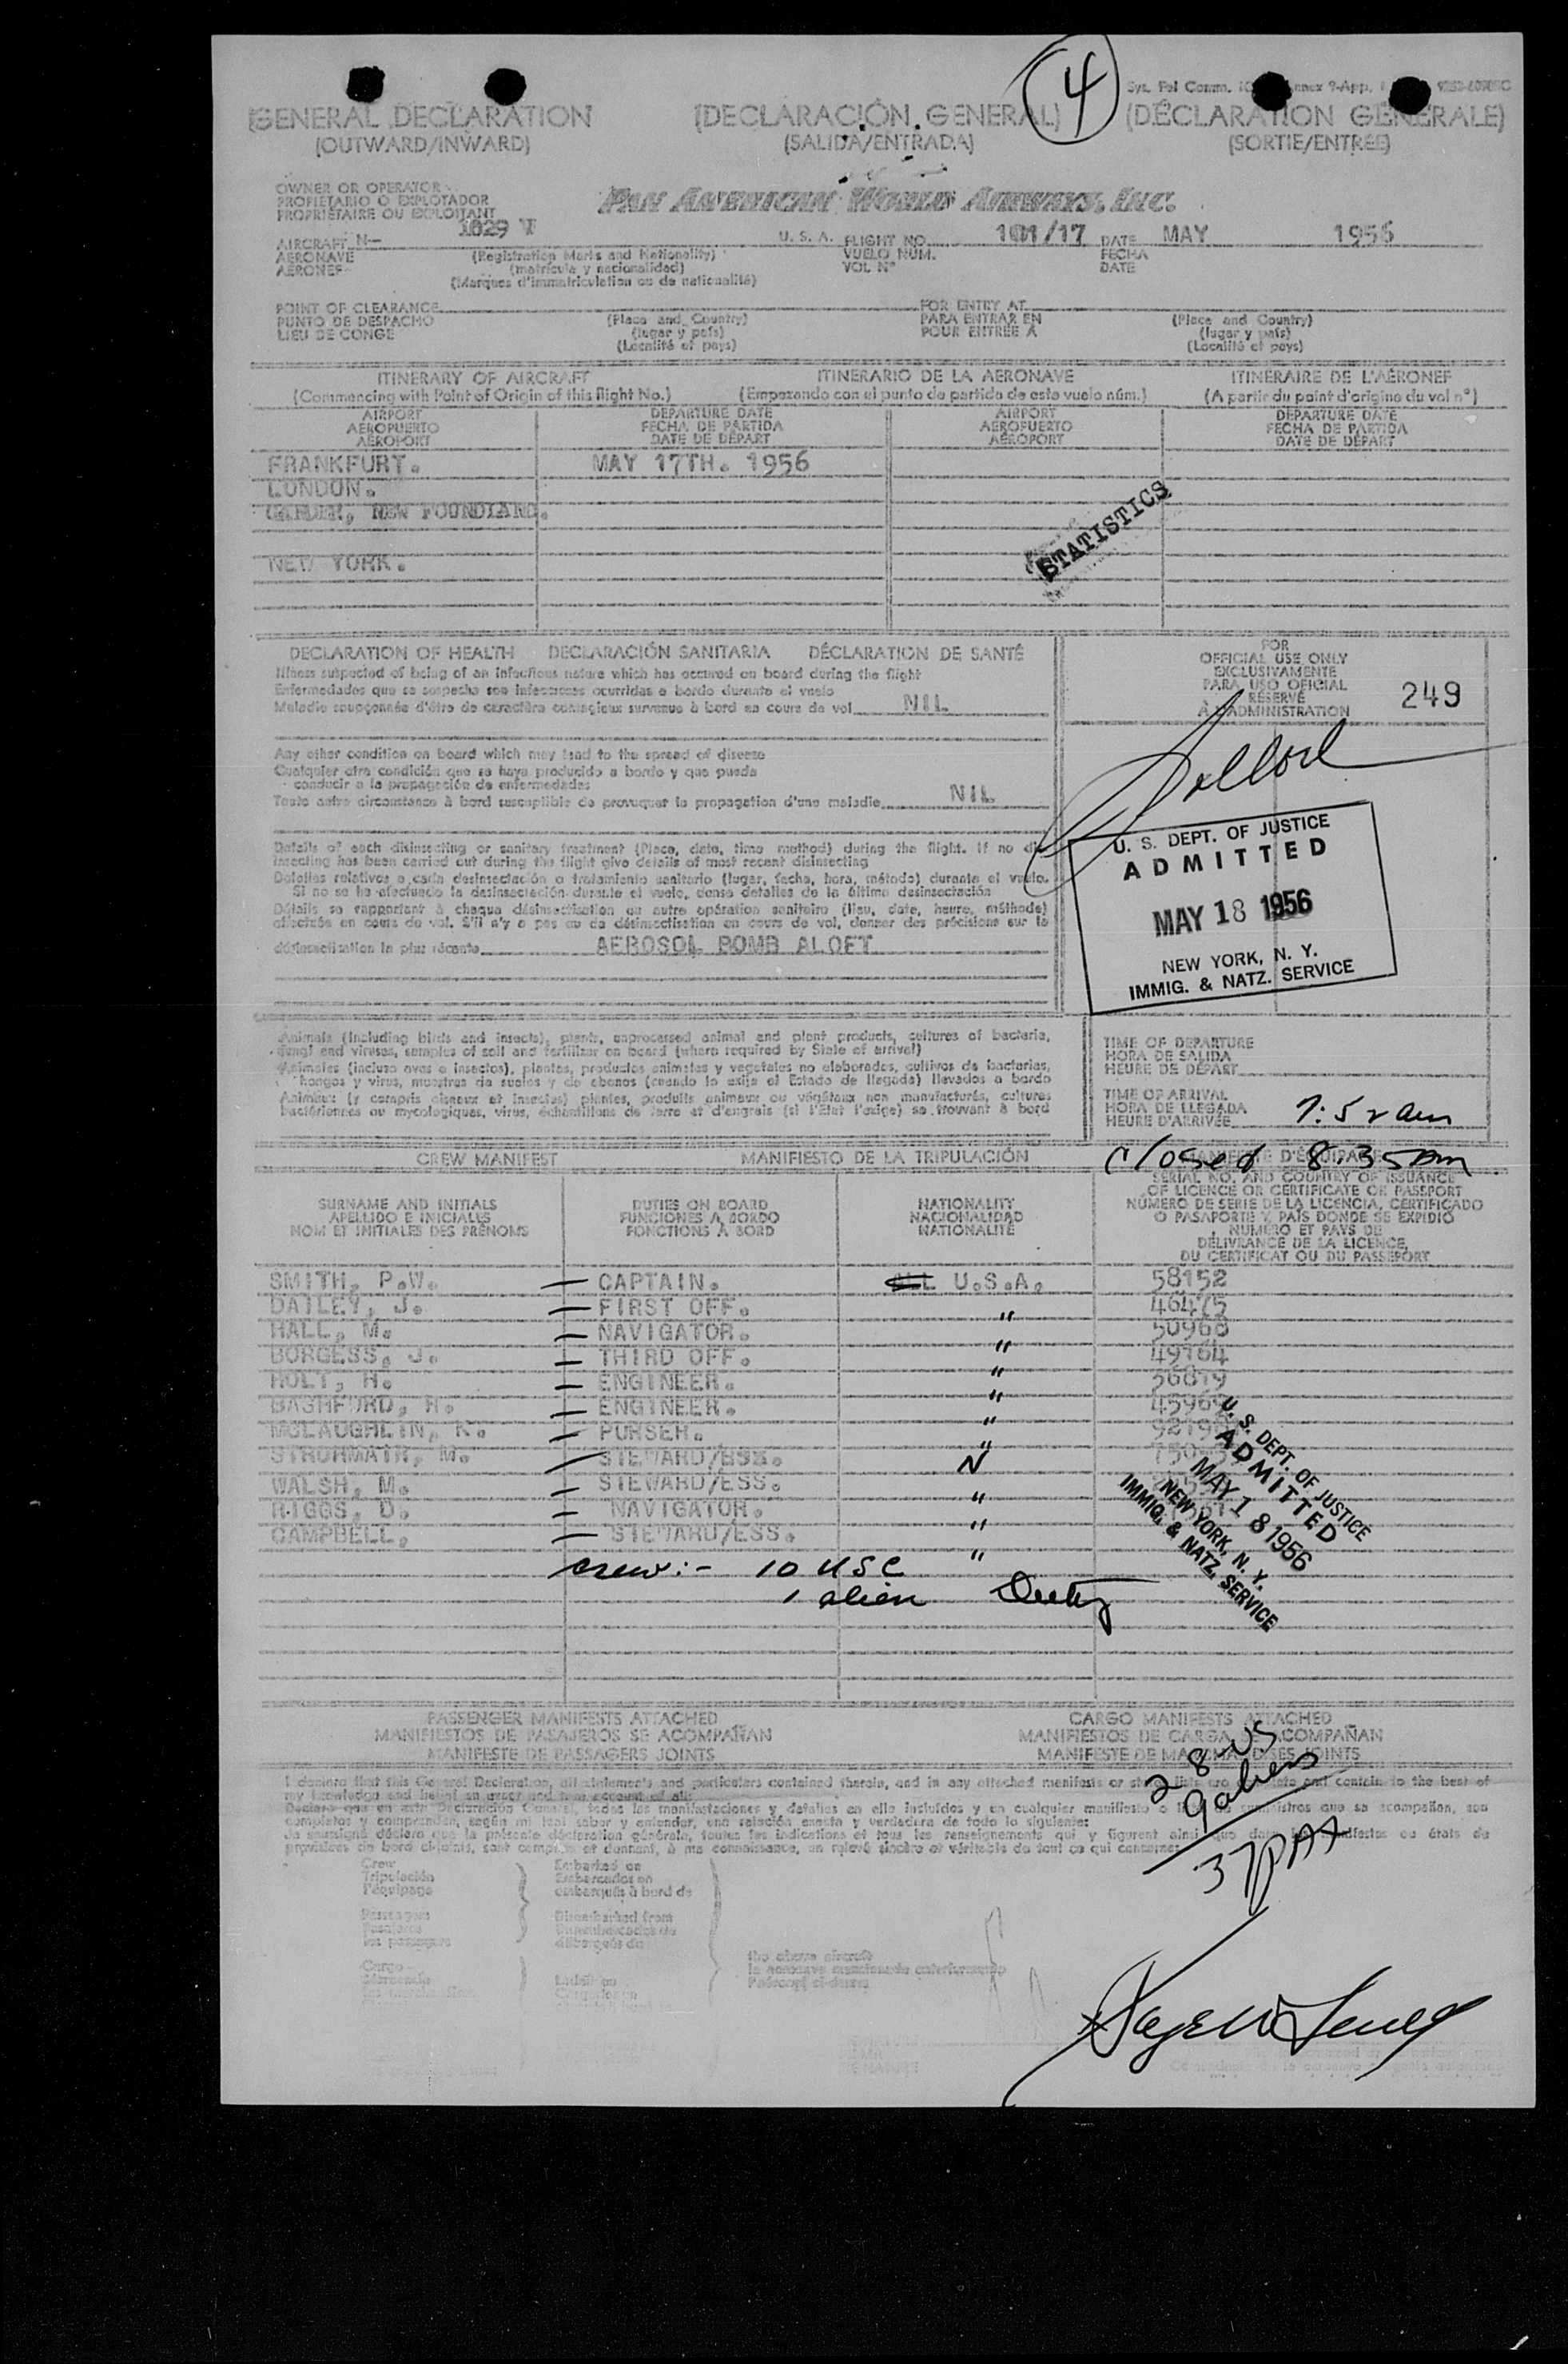 4
[GENERAL DECLARATION (DECLARACIÓN GENERAL) (DÉCLARATION GÉNÉRALE)
(OUTWARD/INWARD) (SALIDA/ENTRADA) (SORTIE/ENTRÉE)
OWNER OR OPERATOR
PROPIETARIO O EXPLOTADOR
PROPRIÉTAIRE OU EXPLOITANT
PAN AMERICAN WORLD AIRWAYS, INC.
AIRCRAFT N- 1029 V U. S. A. FLIGHT NO. 101/17 DATE MAY 1956
AERONAVE (Registration Marks and Nationality) VUELO NUM. FECHA
AÉRONEF (matrícula y nacionalidad) VOL N° DATE
(Marques d'immatriculation ou de nationalité)
POINT OF CLEARANCE FOR ENTRY AT
PUNTO DE DESPACHO (Place and Country) PARA ENTRAR EN (Place and Country)
LIEU DE CONGE (lugar y país) POUR ENTRÉE À (lugar y país)
(Localité et pays) (Localité et pays)
ITINERARY OF AIRCRAFT ITINERARIO DE LA AERONAVE ITINÉRAIRE DE L'AÉRONEF
(Commencing with Point of Origin of this flight No.) (Empezando con el punto de partida de este vuelo núm.) (A partir du point d'origine du vol n°)
AIRPORT DEPARTURE DATE AIRPORT DEPARTURE DATE
AEROPUERTO FECHA DE PARTIDA AEROPUERTO FECHA DE PARTIDA
AÉROPORT DATE DE DÉPART AÉROPORT DATE DE DÉPART
FRANKFURT. MAY 17TH. 1956
LONDON.
GANDER, NEW FOUNDLAND.
STATISTICS
NEW YORK.
DECLARATION OF HEALTH DECLARACIÓN SANITARIA DÉCLARATION DE SANTÉ
Illness suspected of being of an infectious nature which has occurred on board during the flight
Enfermedades que se sospecha son infecciosas ocurridas a bordo durante el vuelo
Maladie soupçonnée d'être de caractère contagieux survenue à bord au cours de vol NIL
FOR
OFFICIAL USE ONLY
EXCLUSIVAMENTE
PARA USO OFICIAL
RÉSERVÉ
À L'ADMINISTRATION
249
Any other condition on board which may lead to the spread of disease
Cualquier otra condición que se haya producido a bordo y que pueda
conducir a la propagación de enfermedades
Toute autre circonstance à bord susceptible de provoquer la propagation d'une maladie NIL
Details of each disinsecting or sanitary treatment (Place, date, time method) during the flight. If no dis-
insecting has been carried out during the flight give details of most recent disinsecting
Detalles relativos a cada desinsectación o tratamiento sanitario (lugar, fecha, hora, método) durante el vuelo.
Si no se ha efectuado la desinsectación durante el vuelo, dense detalles de la última desinsectación
Détails se rapportant à chaque désinsectisation ou autre opération sanitaire (lieu, date, heure, méthode)
effectuée en cours de vol. S'il n'y a pas eu de désinsectisation en cours de vol, donner des précisions sur la
désinsectisation la plus récente AEROSOL BOMB ALOFT
U. S. DEPT. OF JUSTICE
ADMITTED
MAY 18 1956
NEW YORK, N. Y.
IMMIG. & NATZ. SERVICE
Animals (including birds and insects), plants, unprocessed animal and plant products, cultures of bacteria,
fungi and viruses, samples of soil and fertilizer on board (where required by State of arrival)
Animales (incluso aves e insectos), plantas, productos animales y vegetales no elaborados, cultivos de bacterias,
hongos y virus, muestras de suelos y de abonos (cuando lo exija el Estado de llegada) llevados a bordo
Animaux (y compris oiseaux et insectes) plantes, produits animaux ou végétaux non manufacturés, cultures
bactériennes ou mycologiques, virus, échantillons de terre et d'engrais (si l'État l'exige) se trouvant à bord
TIME OF DEPARTURE
HORA DE SALIDA
HEURE DE DÉPART
TIME OF ARRIVAL
HORA DE LLEGADA
HEURE D'ARRIVÉE
Closed 8:35
CREW MANIFEST MANIFIESTO DE LA TRIPULACIÓN
SURNAME AND INITIALS DUTIES ON BOARD NATIONALITY
APELLIDO E INICIALES FUNCIONES A BORDO NACIONALIDAD
NOM ET INITIALES DES PRÉNOMS FONCTIONS À BORD NATIONALITÉ
SERIAL NO. AND COUNTRY OF ISSUANCE
OF LICENCE OR CERTIFICATE OR PASSPORT
NUMERO DE SERIE DE LA LICENCIA, CERTIFICADO
O PASAPORTE Y PAÍS DONDE SE EXPIDIÓ
NUMÉRO ET PAYS DE
DÉLIVRANCE DE LA LICENCE,
DU CERTIFICAT OU DU PASSEPORT
SMITH, P.W. — CAPTAIN. U.S.A. 58152
DAILEY, J. — FIRST OFF. " 46475
HALL, M. — NAVIGATOR. " 50968
BORGESS, J. — THIRD OFF. " 49164
HOLT, H. — ENGINEER. " 56879
BASHFORD, H. — ENGINEER. "
MCLAUGHLIN, K. — PURSER. "
STROHMAIR, M. — STEWARD/ESS. N
WALSH, M. — STEWARD/ESS. "
RIGGS, D. — NAVIGATOR. "
CAMPBELL, — STEWARD/ESS. "
U. S. DEPT. OF JUSTICE
ADMITTED
MAY 18 1956
NEW YORK, N. Y.
IMMIG. & NATZ. SERVICE
crew:- 10 USC
1 alien
PASSENGER MANIFESTS ATTACHED CARGO MANIFESTS ATTACHED
MANIFIESTOS DE PASAJEROS SE ACOMPAÑAN MANIFIESTOS DE CARGA SE ACOMPAÑAN
MANIFESTE DE PASSAGERS JOINTS MANIFESTE DE MARCHANDISES JOINTS
28 US
9 aliens
37 PAX
I declare that this General Declaration, all statements and particulars contained therein, and in any attached manifests or
my knowledge and belief an exact and true account of all:
Crew
Tripulación
l'équipage
Embarked on
Embarcados en
embarqués à bord de
Disembarked from
the above aircraft
la aeronave mencionada anteriormente